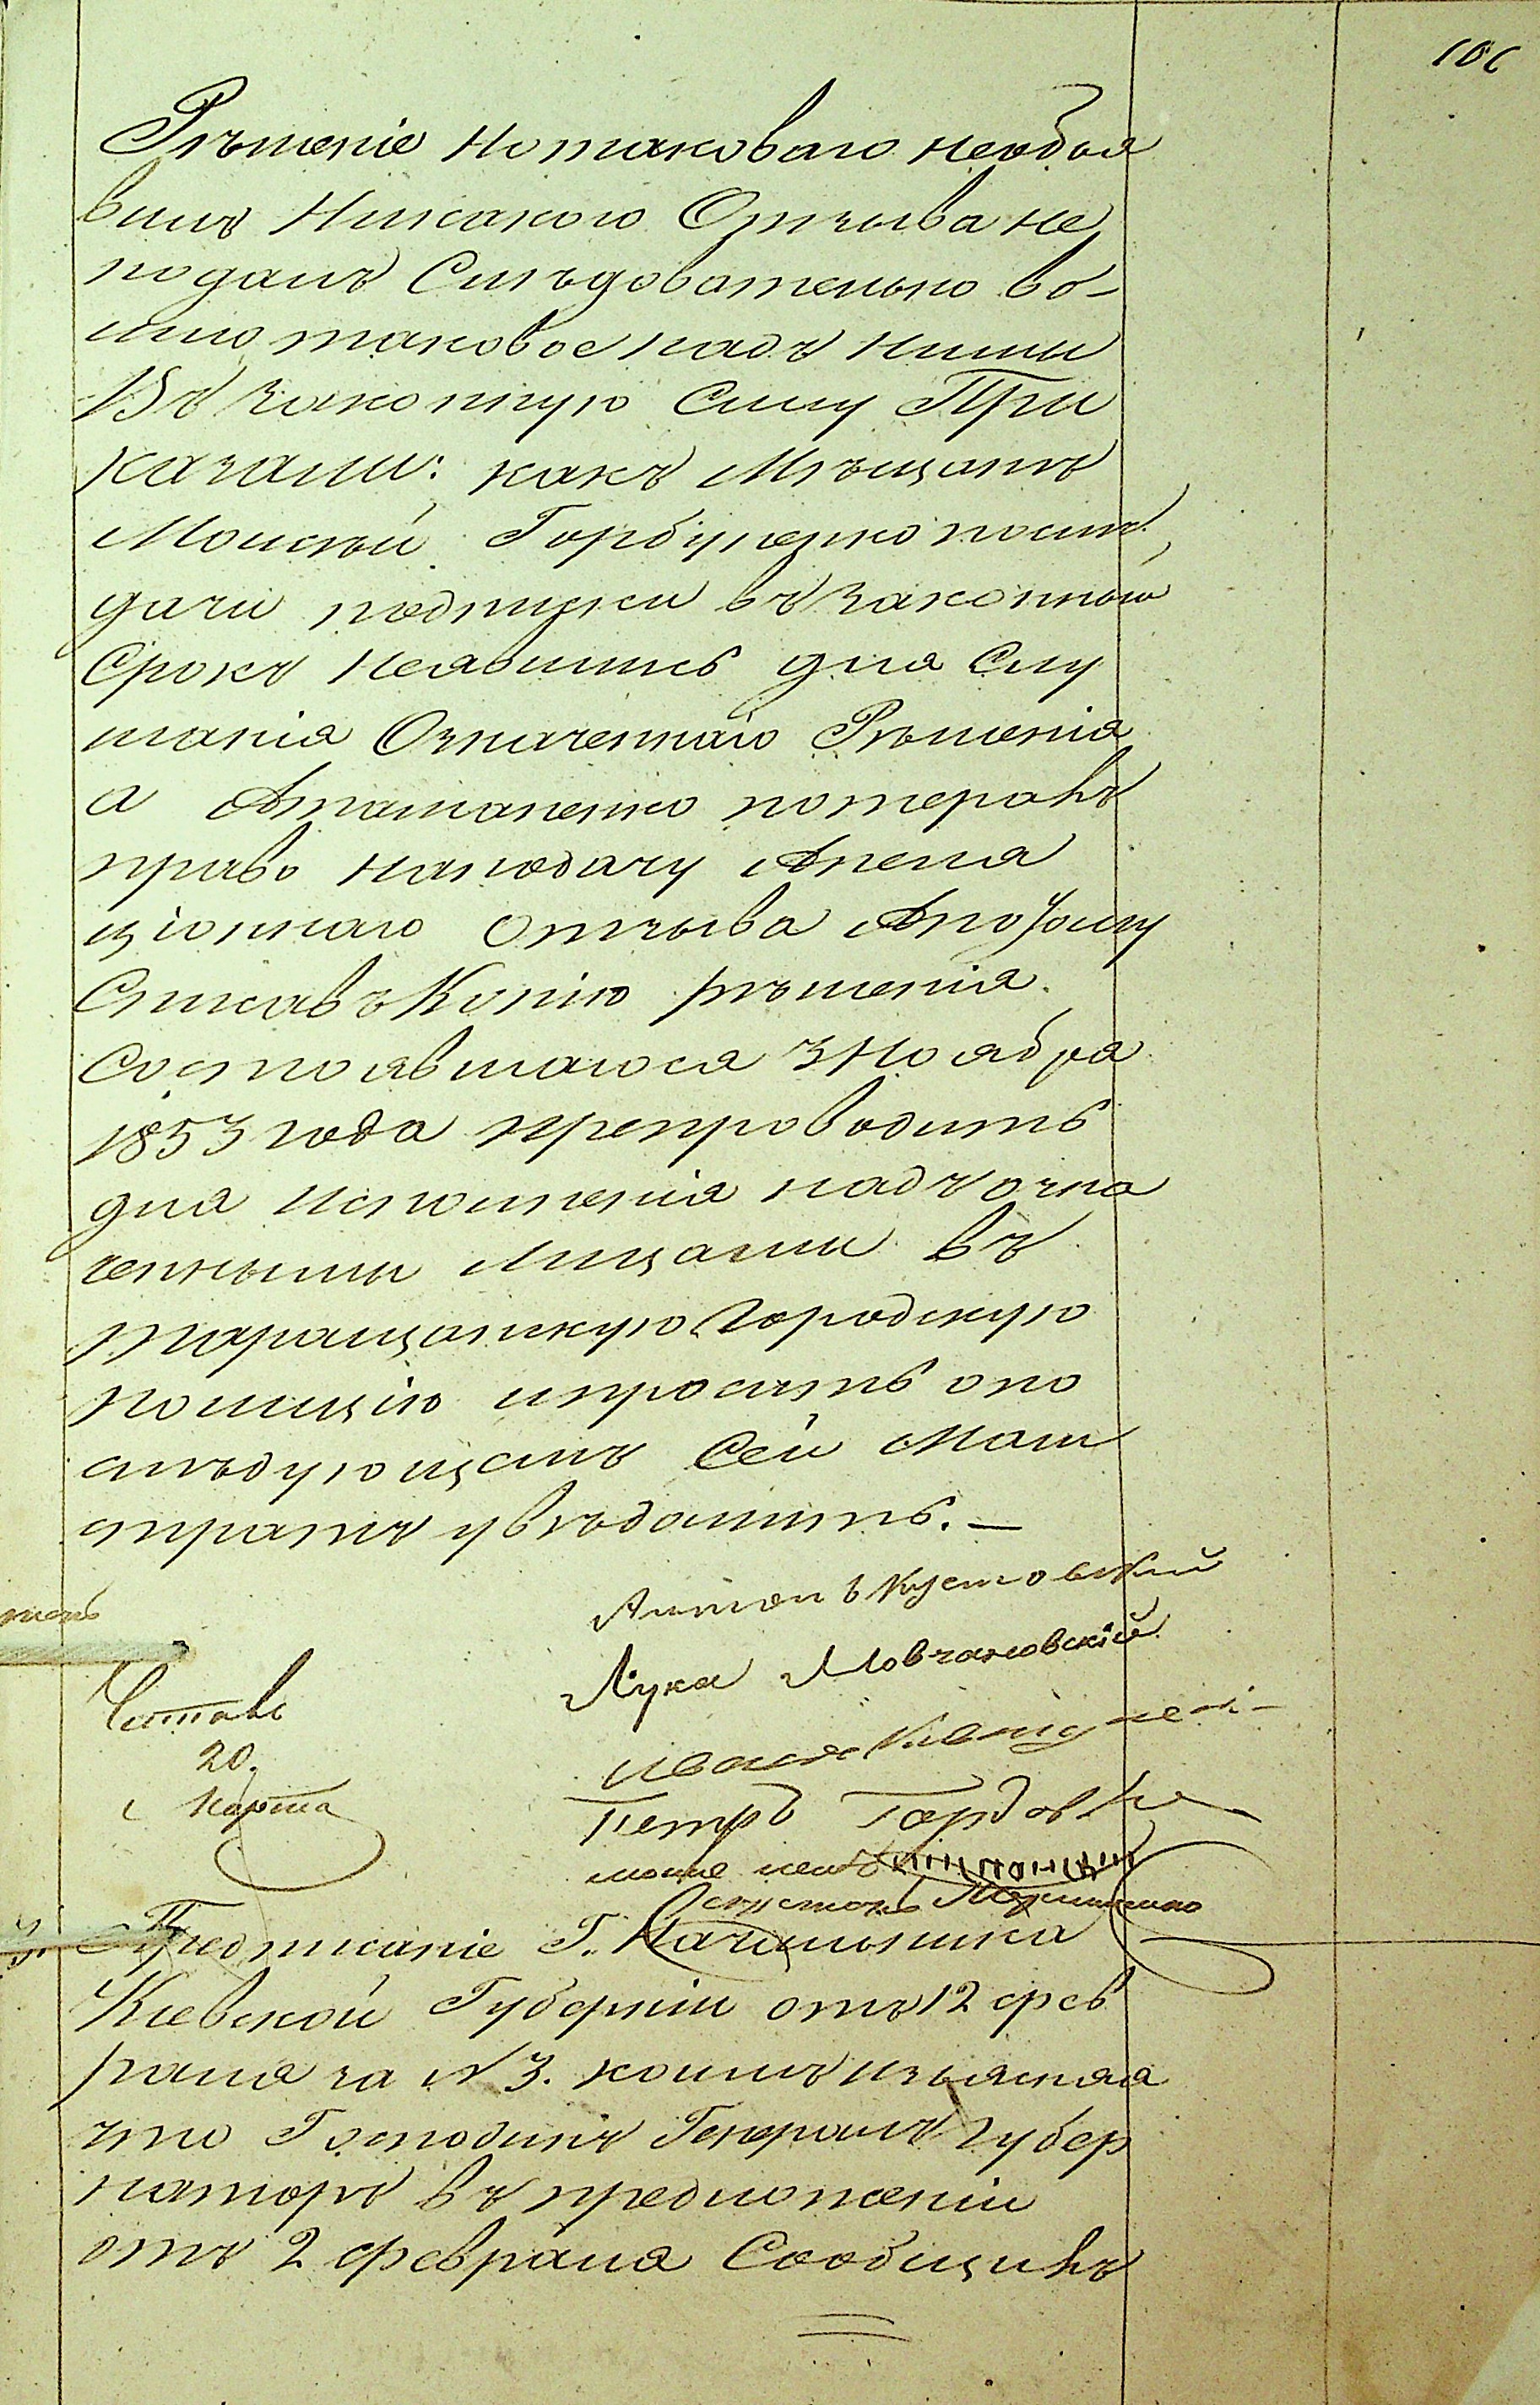 106
Рѣшеніе но таковаго необъя
вилъ Никакого Отзыва не
подалъ Слѣдовательно во-
шло таковое надъ ними
Въ законную Силу При
казали: какъ Мѣщанъ
Моисѣй Горбуленко послѣ
дачи подписки въ законный
Срокъ Неявились для Слу
шанія Означеннаго Рѣшенія
а Атаманенко потерялъ
право на подачу Апеля
ціоннаго отзыва А потому
Списавъ Копію рѣшенія
Состоявшагося 3 Ноября
1853 года препроводить
для Исполненія надъ озна
ченными Лицами въ
Таращанскую Городскую
полицію и просить опо
слѣдующемъ Сей Маги
стратъ увѣдомить. —
Антонъ Кустовский
Лука Мовчановскій
Иванъ
Петръ Гордовс
Читалъ
20.
Марта
Предписаніе Г. Начальника
Кіевской Губерніи отъ 12 фев
раля за N 3. коимъ изъясняя
что Господинъ Генералъ Губер
наторъ въ предложеніи
отъ 2 февраля Сообщилъ